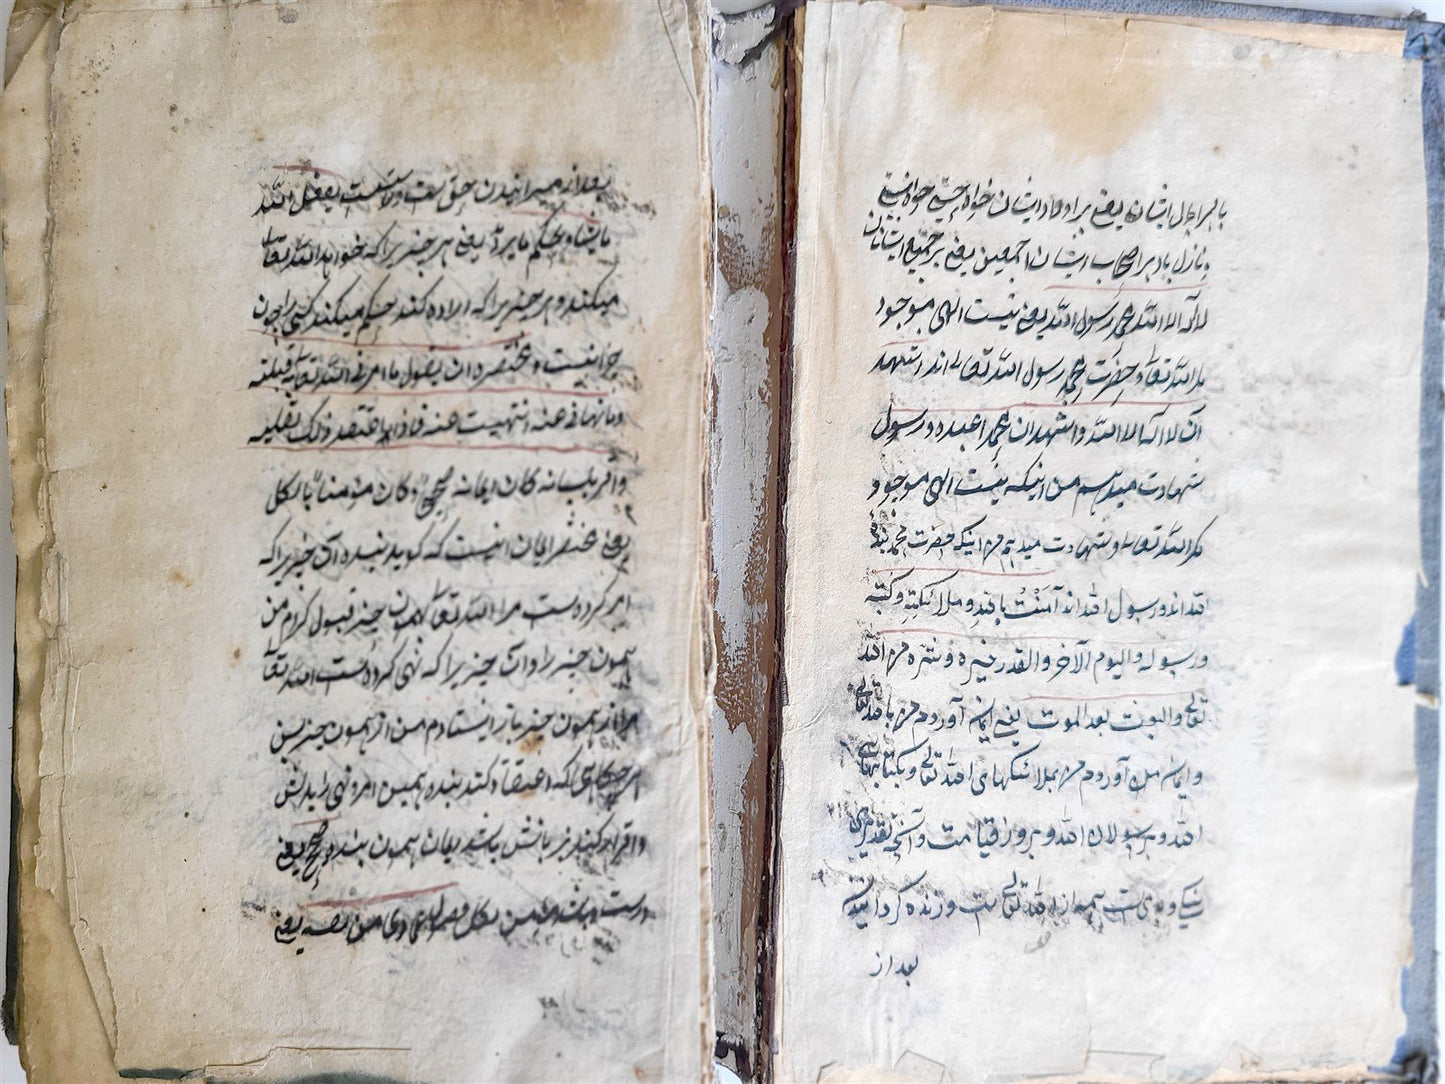 بالهر اهل ایشان یعنے براولاد ایشان خواه حسے خواه نسبے
و نازل باد بر اصحاب ایشان اجمعین یعنے بر جمیع ایشانان
لا اله الا الله محمد رسول الله یعنے نیست الهی موجود
مکر الله تعالے و حضرت محمد رسول الله تعالے اند اشهد
ان لا اله الا الله و اشهد ان محمدا عبده و رسوله
شهادت میدهم من اینکه نیست الهی موجود
مکر الله تعالے و شهادت میدهم من اینکه حضرت محمد بنده
الله اند و رسول الله اند آمَنْتُ بالله و ملائکته و کتبه
و رسوله و الیوم الآخر والقدر خیره و شره من الله
تعالی والبعث بعد الموت یعنے ایمان آوردم من بالله تعالی
و ایمان آوردم من بملائکهای الله تعالی و بکتابهای
الله و برسولان الله و بروز قیامت و آنچه تقدیر
نیکے و بدی است همه از الله تعالی است و زنده کردانیدن
بعد از
بعد از میرانیدن حق است و راست یفعل الله
ما یشاء و یحکم ما یرید یعنے هر چیزیرا که خواهد الله تعالی
میکند و هر چیزیرا که اراده کند حکم میکند کسی را چون
چرا نیست و مختصره ان یقول ما امرنی الله تعالی قبلته
و ما نهانی عنه انتهیت عنه فاذا اعتقد ذلک بقلبه
و اقر بلسانه کان ایمانه صحیحا و کان مؤمنا بالکل
یعنے مختصر ایمان اینست که کوید بنده آن چیزیرا که
امر کرده است مرا الله تعالی همون چیز قبول کردم من
همون چیز را و آن چیزیرا که نهی کرده است الله تعالی
مرا از همون چیز باز ایستادم من از همون چیز پس
هرکاهی که اعتقاد کند بنده همین امر و نهی را بدلش
و اقرار کند بزبانش باشد ایمان همون بنده صحیح یعنے
درست و باشد مؤمن بکل